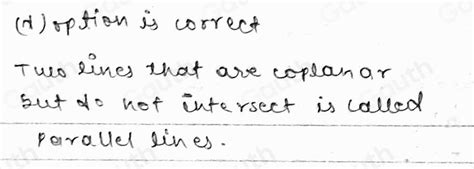 (d) option is correct
Two lines that are coplanar
but do not intersect is called
parallel lines.